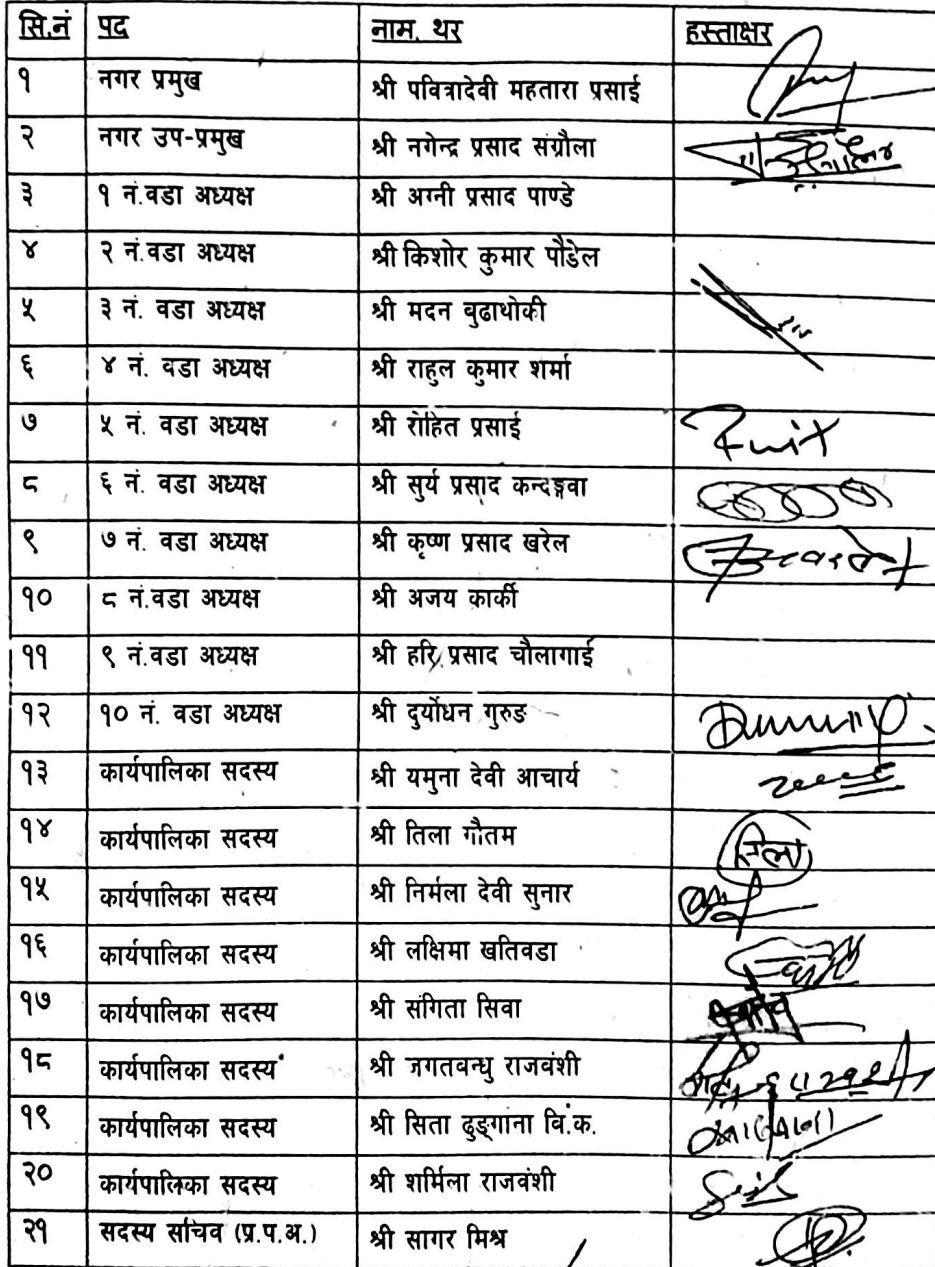 सि.नं पद नाम, थर हस्ताक्षर
१ नगर प्रमुख श्री पवित्रादेवी महतारा प्रसाई
२ नगर उप-प्रमुख श्री नगेन्द्र प्रसाद संग्रौला
३ १ नं.वडा अध्यक्ष श्री अग्नी प्रसाद पाण्डे
४ २ नं.वडा अध्यक्ष श्री किशोर कुमार पौडेल
५ ३ नं. वडा अध्यक्ष श्री मदन बुढाथोकी
६ ४ नं. वडा अध्यक्ष श्री राहुल कुमार शर्मा
७ ५ नं. वडा अध्यक्ष श्री रोहित प्रसाई
८ ६ नं. वडा अध्यक्ष श्री सुर्य प्रसाद कन्दङ्गवा
९ ७ नं. वडा अध्यक्ष श्री कृष्ण प्रसाद खरेल
१० ८ नं.वडा अध्यक्ष श्री अजय कार्की
११ ९ नं.वडा अध्यक्ष श्री हरि प्रसाद चौलागाई
१२ १० नं. वडा अध्यक्ष श्री दुर्योधन गुरुङ
१३ कार्यपालिका सदस्य श्री यमुना देवी आचार्य
१४ कार्यपालिका सदस्य श्री तिला गौतम तिला
१५ कार्यपालिका सदस्य श्री निर्मला देवी सुनार
१६ कार्यपालिका सदस्य श्री लक्षिमा खतिवडा
१७ कार्यपालिका सदस्य श्री संगिता सिवा
१८ कार्यपालिका सदस्य श्री जगतबन्धु राजवंशी
१९ कार्यपालिका सदस्य श्री सिता ढुङ्गाना वि.क.
२० कार्यपालिका सदस्य श्री शर्मिला राजवंशी
२१ सदस्य सचिव (प्र.प.अ.) श्री सागर मिश्र